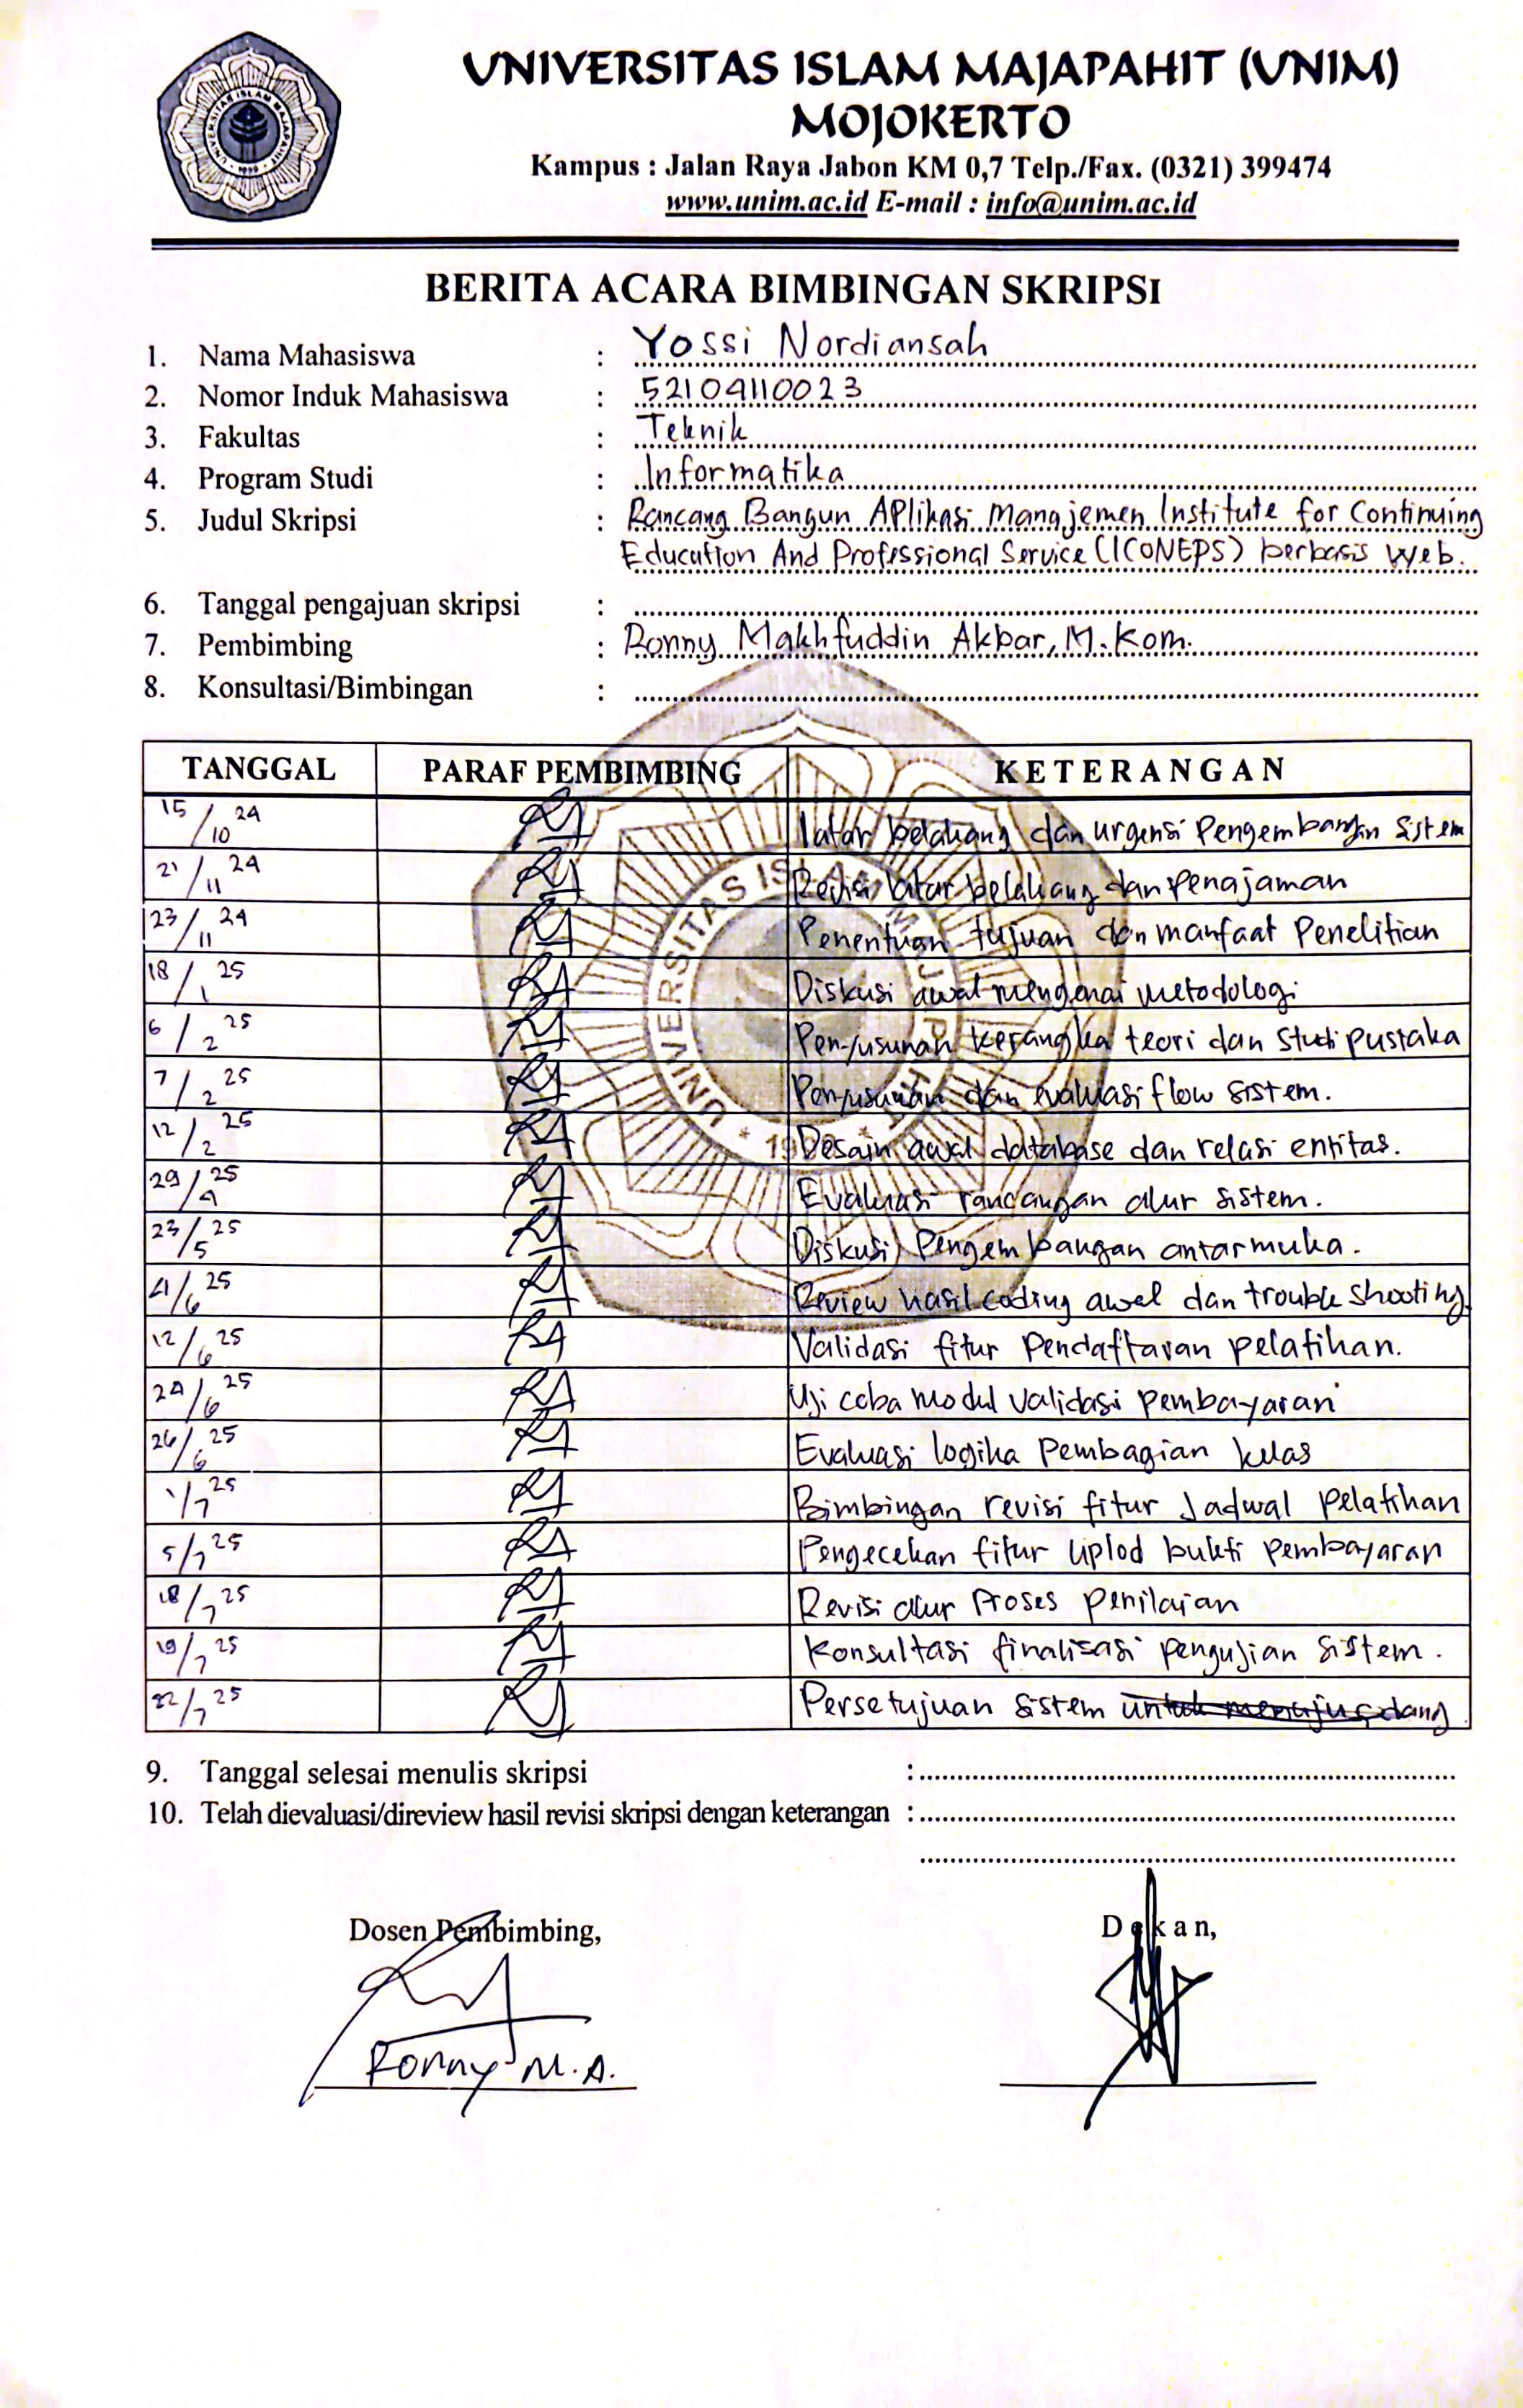 UNIVERSITAS ISLAM MAJAPAHIT (UNIM)
MOJOKERTO
Kampus : Jalan Raya Jabon KM 0,7 Telp./Fax. (0321) 399474
www.unim.ac.id E-mail : info@unim.ac.id
BERITA ACARA BIMBINGAN SKRIPSI
1. Nama Mahasiswa : Yossi Nordiansah
2. Nomor Induk Mahasiswa : 52104110023
3. Fakultas : Teknik
4. Program Studi : Informatika
5. Judul Skripsi : Rancang Bangun Aplikasi Manajemen Institute for Continuing
Education And Professional Service (ICONEPS) berbasis Web.
6. Tanggal pengajuan skripsi :
7. Pembimbing : Ronny Makhfuddin Akbar, M.Kom.
8. Konsultasi/Bimbingan :
TANGGAL PARAF PEMBIMBING KETERANGAN
15/10 24 latar belakang dan urgensi Pengembangan Sistem
21/11 24 Revisi latar belakang dan Penajaman
23/11 24 Penentuan tujuan dan manfaat Penelitian
18/1 25 Diskusi awal mengenai metodologi
6/2 25 Penyusunan kerangka teori dan Studi pustaka
7/2 25 Penyusunan dan evaluasi flow sistem.
12/2 25 Desain awal database dan relasi entitas.
29/4 25 Evaluasi rancangan alur sistem.
23/5 25 Diskusi Pengembangan antarmuka.
4/6 25 Review hasil coding awal dan trouble shooting
12/6 25 Validasi fitur Pendaftaran pelatihan.
24/6 25 Uji coba modul validasi pembayaran
26/6 25 Evaluasi logika Pembagian kelas
1/7 25 Bimbingan revisi fitur Jadwal pelatihan
5/7 25 Pengecekan fitur uplod bukti pembayaran
18/7 25 Revisi alur Proses penilaian
19/7 25 Konsultasi finalisasi pengujian sistem.
22/7 25 Persetujuan sistem untuk menuju sidang
9. Tanggal selesai menulis skripsi :
10. Telah dievaluasi/direview hasil revisi skripsi dengan keterangan :
Dosen Pembimbing, Dekan,
Ronny M.A.